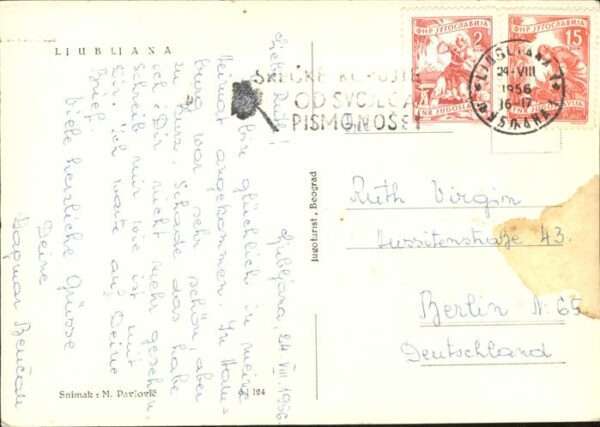 LJUBLJANA
Ljubljana, 24. VIII. 1956
Liebe Ruth!
bin glücklich in meine
Heimat angekommen. In Ham-
burg war sehr schön, aber
zu kurz. Schade das habe
ich Dir nicht mehr gesehen.
Schreib mir wie ist mit
Dir. Ich warte auf Deine
Brief.
Viele herzliche Grüsse
Deine
Dagmar
Snimak: M. Pavlović
124
Jugoturist, Beograd
OD SVOJEGA
PISMONOŠE!
ФНР ЈУГОСЛАВИЈА
2
FNR JUGOSLAVIJA
ФНР ЈУГОСЛАВИЈА
15
FNR JUGOSLAVIJA
LJUBLJANA 1
24-VIII
1956
16-17
Ruth Virgin
Hussitenstraße 43.
Berlin N. 65
Deutschland